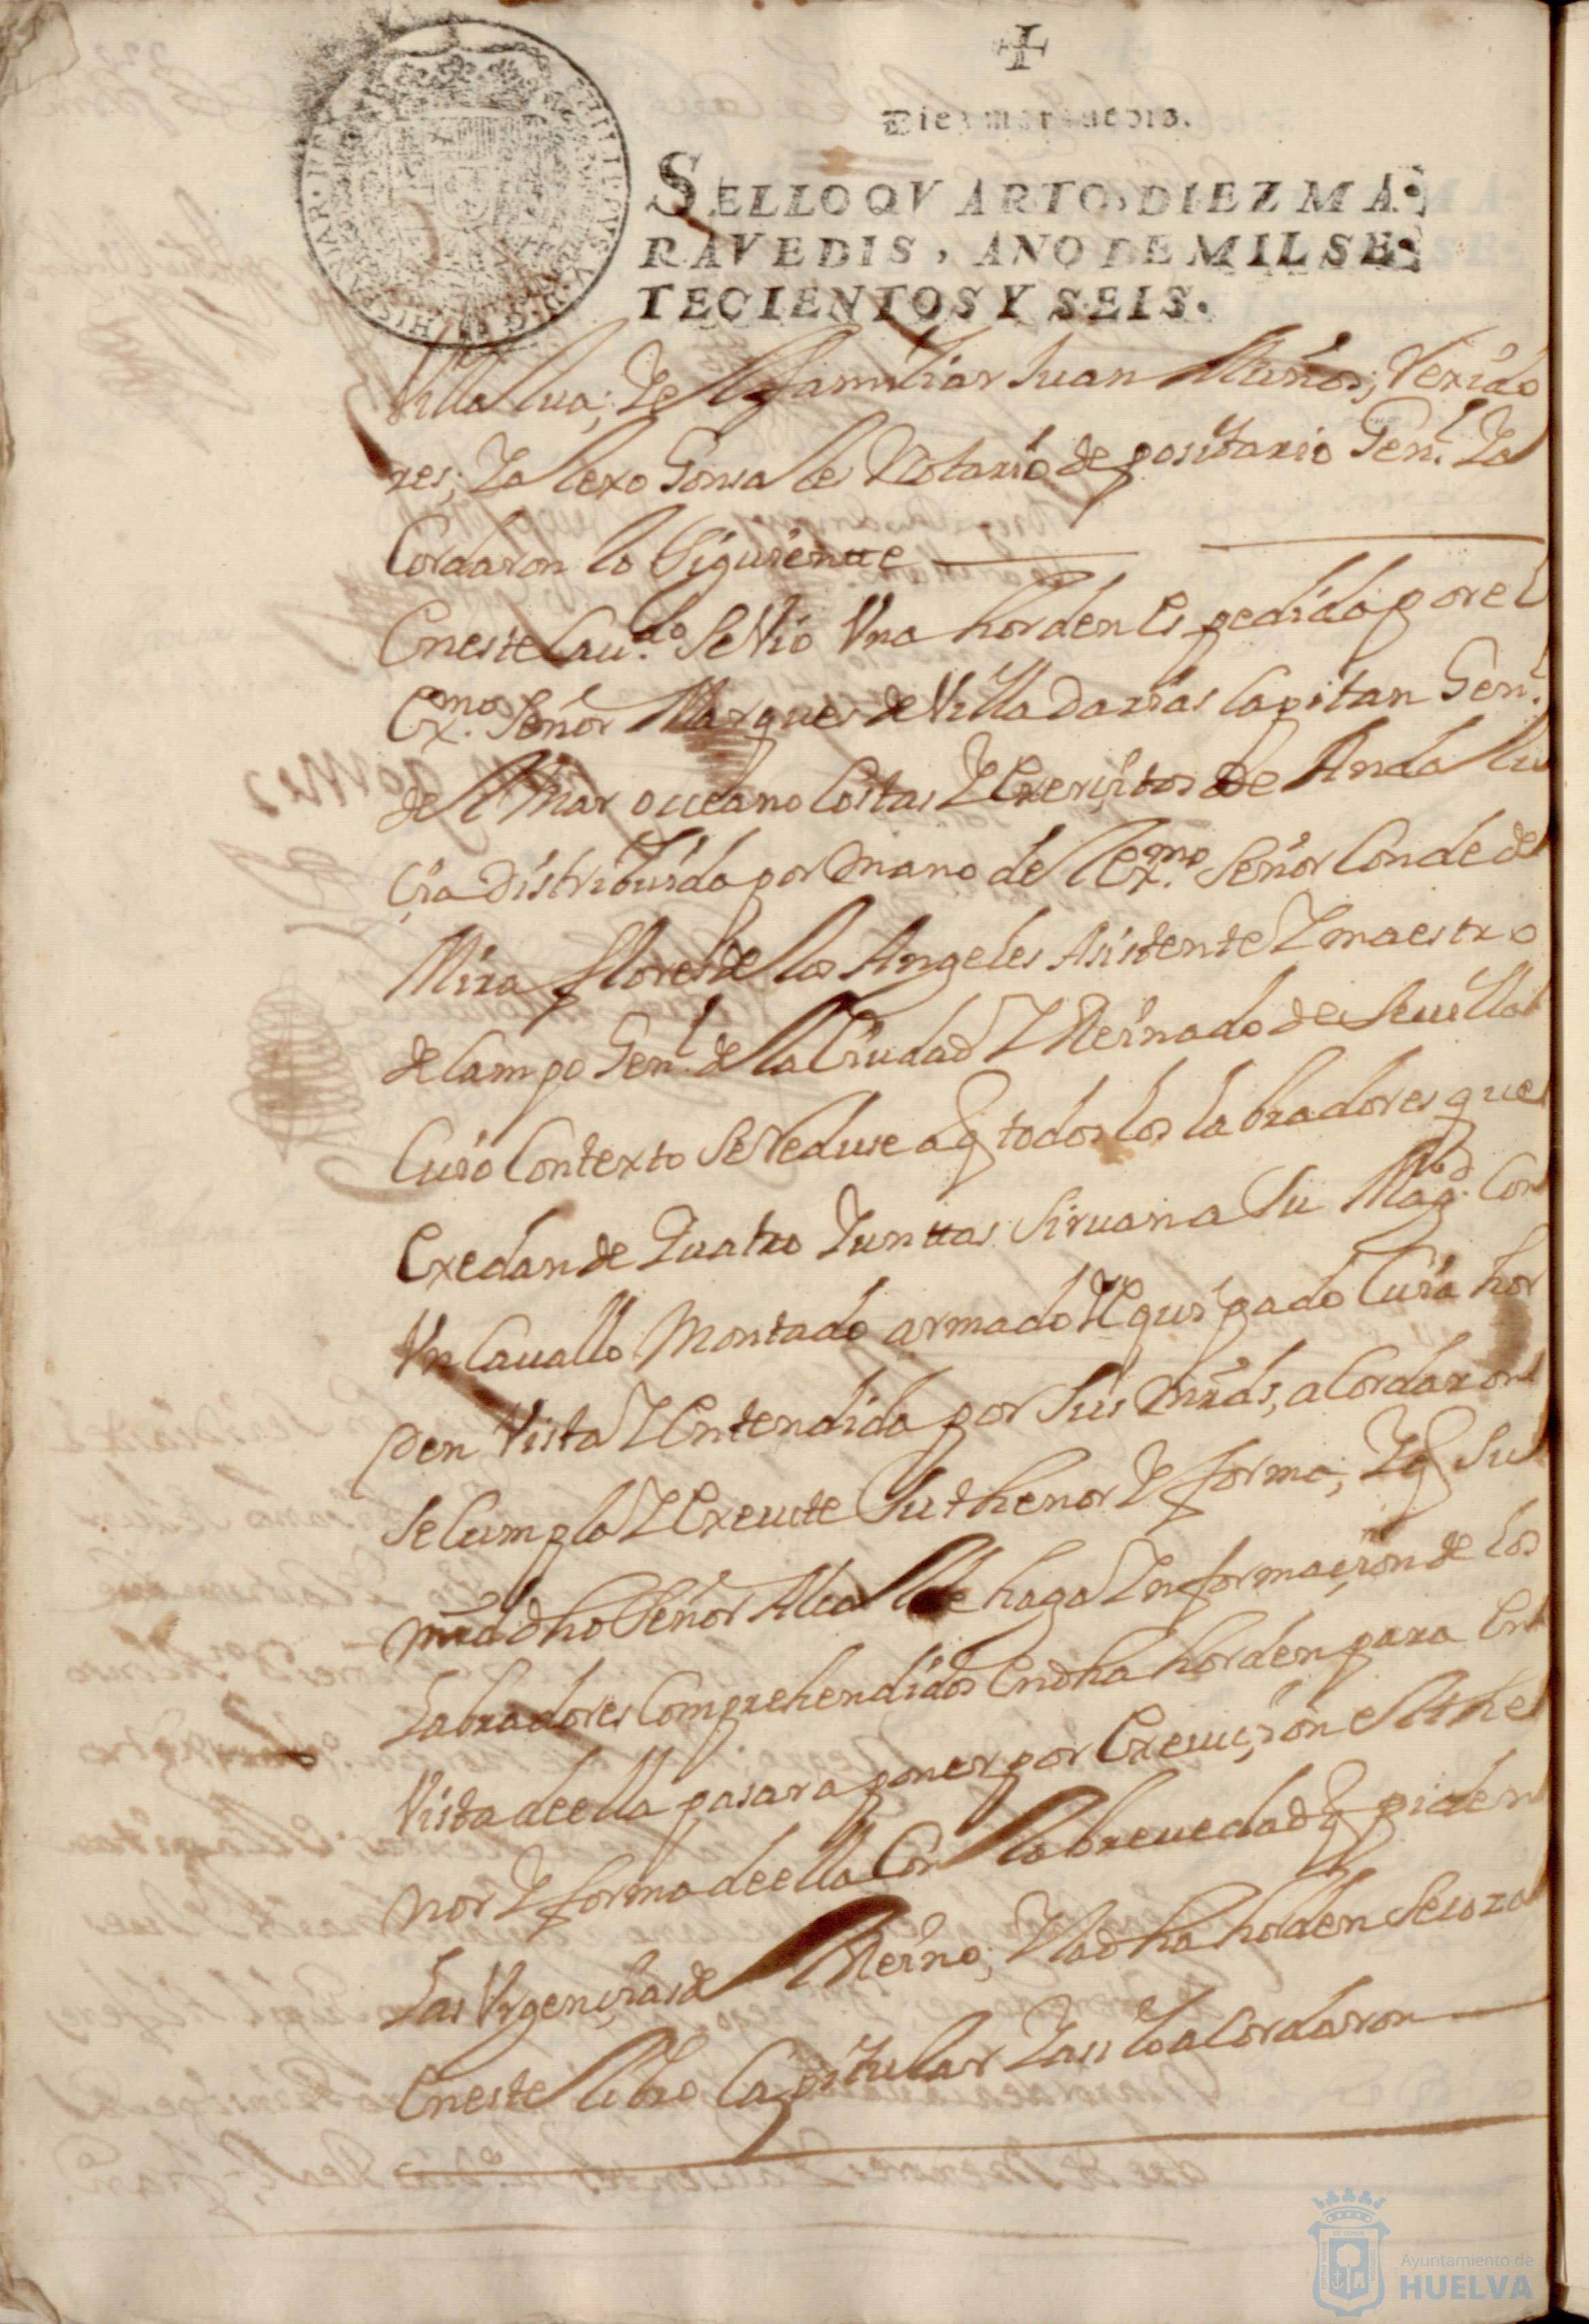 Diez marauedis.
SELLO QVARTO, DIEZ MA-
RAVEDIS, AÑO DE MIL SE-
TECIENTOS Y SEIS.
PHILIPPVS V D G HISPANIAR REX
Villalua; Y el familiar Juan Muños; Rexido
res; Y Alexo Gonsales Notario depositario Gen.l Y a
Cordaron lo Siguientte
En este Cau.do Se Vio Vna horden Espedida por el
Ex.mo Señor Marques de Villadarias Capitan Gen.l
del Mar occeano Costas Y Exerçitos de Andalu
çia Distribuida por mano del Ex.mo Señor Conde de
Miraflores de los Angeles Asistente Y maestro
de Campo Gen.l de la Ciudad Y Reinado de Seuilla
Cuio Contexto Se Reduse a q todos los labradores que
Exedan de Quatro Junttas Siruan a Su Mag.d Con
Vn Cauallo Montado armado Y Equipado Cuia hor
den Vista Y Entendida por Sus mrds, aCordaron
Se Cumpla Y Execute Su thenor Y forma; Y q Su
mrd dho Señor Alcallde haga Informaçion de los
Labradores Comprehendidos En dha horden para En
Vista de ella pasar a poner por Execuçion el the
nor Y forma de ella Con la breuedad q piden
Las Vrgençias del Reino; Y la dha horden Se coza
En este libro Capitular Y asi lo aCordaron
Ayuntamiento de
HUELVA